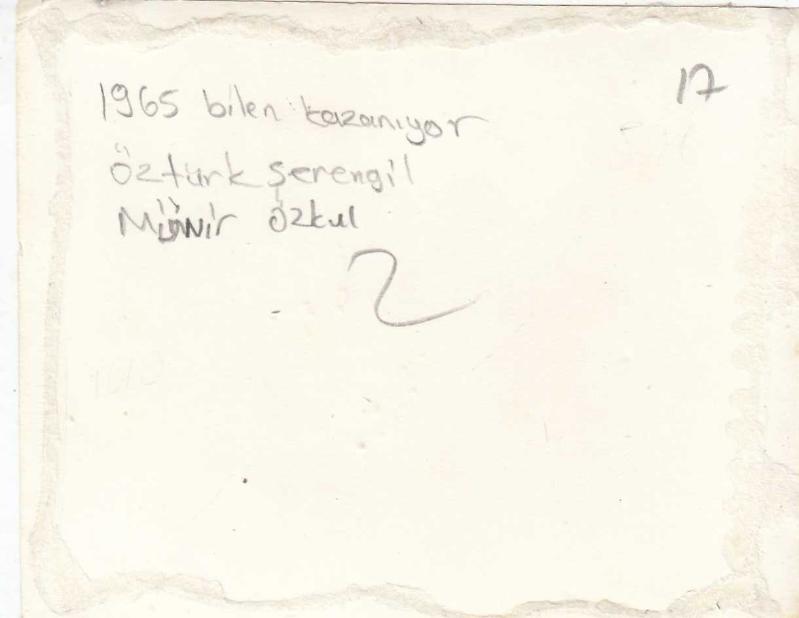 17
1965 bilen kazanıyor
Öztürk Şerengil
Münir Özkul
2